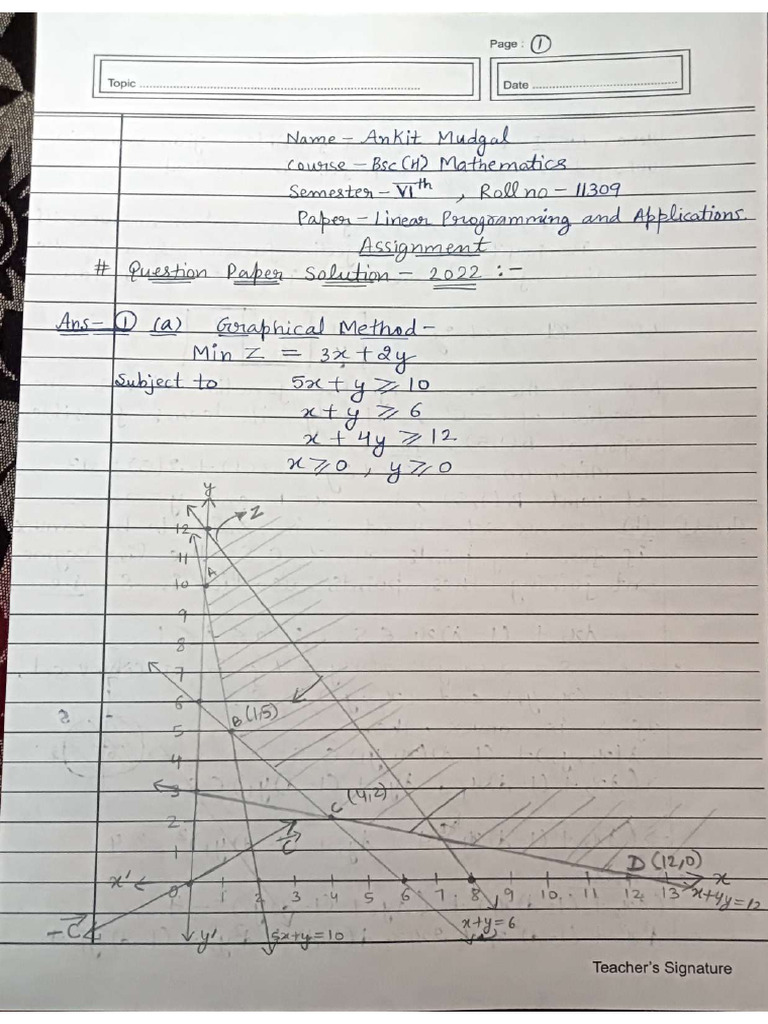 Page : ①
Topic
Date
Name - Ankit Mudgal
Course - Bsc (H) Mathematics
Semester - VIth , Roll no - 11309
Paper - Linear Programming and Applications.
Assignment
# Question Paper Solution - 2022 :-
Ans- ① (a) Graphical Method -
Min Z = 3x + 2y
Subject to 5x + y ⩾ 10
x + y ⩾ 6
x + 4y ⩾ 12
x ⩾ 0 , y ⩾ 0
y
Z
12
11
A
10
9
8
7
6
B (1,5)
5
4
3
C (4,2)
2
C
1
D (12,0)
x' 0 1 2 3 4 5 6 7 8 9 10 11 12 13 x
x+4y=12
x+y=6
-C y' 5x+y=10
Teacher's Signature